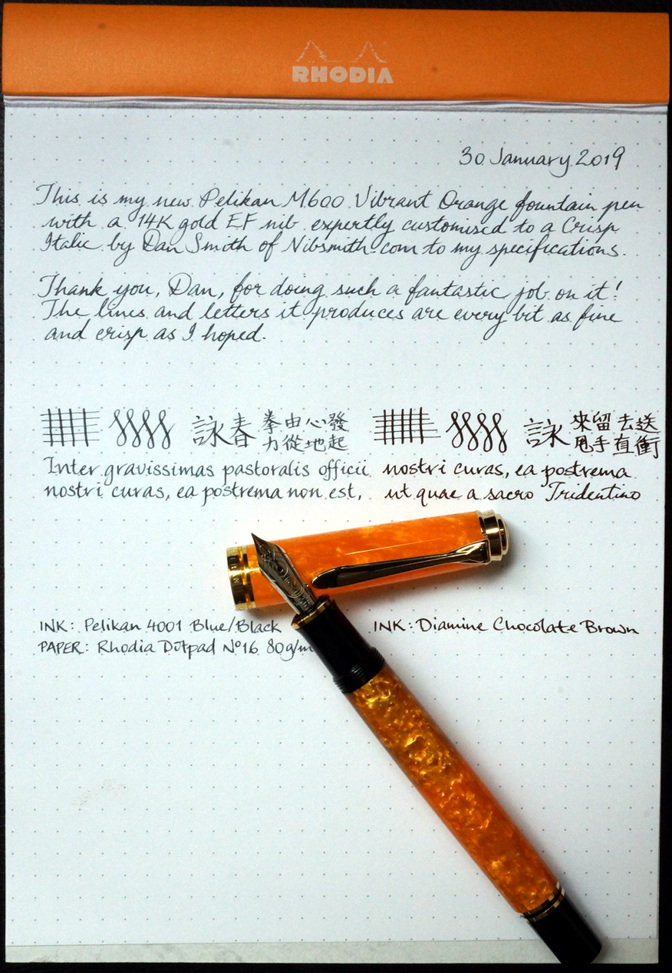 RHODIA
30 January 2019
This is my new Pelikan M600 Vibrant Orange fountain pen
with a 14K gold EF nib expertly customised to a Crisp
Italic by Dan Smith of Nibsmith.com to my specifications.
Thank you, Dan, for doing such a fantastic job on it!
The lines and letters it produces are every bit as fine
and crisp as I hoped.
詠春 拳由心發
力從地起
Inter gravissimas pastoralis officii
nostri curas, ea postrema non est,
詠 來留去送
甩手直衝
nostri curas, ea postrema
ut quae a sacro Tridentino
INK: Pelikan 4001 Blue/Black
PAPER: Rhodia Dotpad Nº16 80g/m
INK: Diamine Chocolate Brown